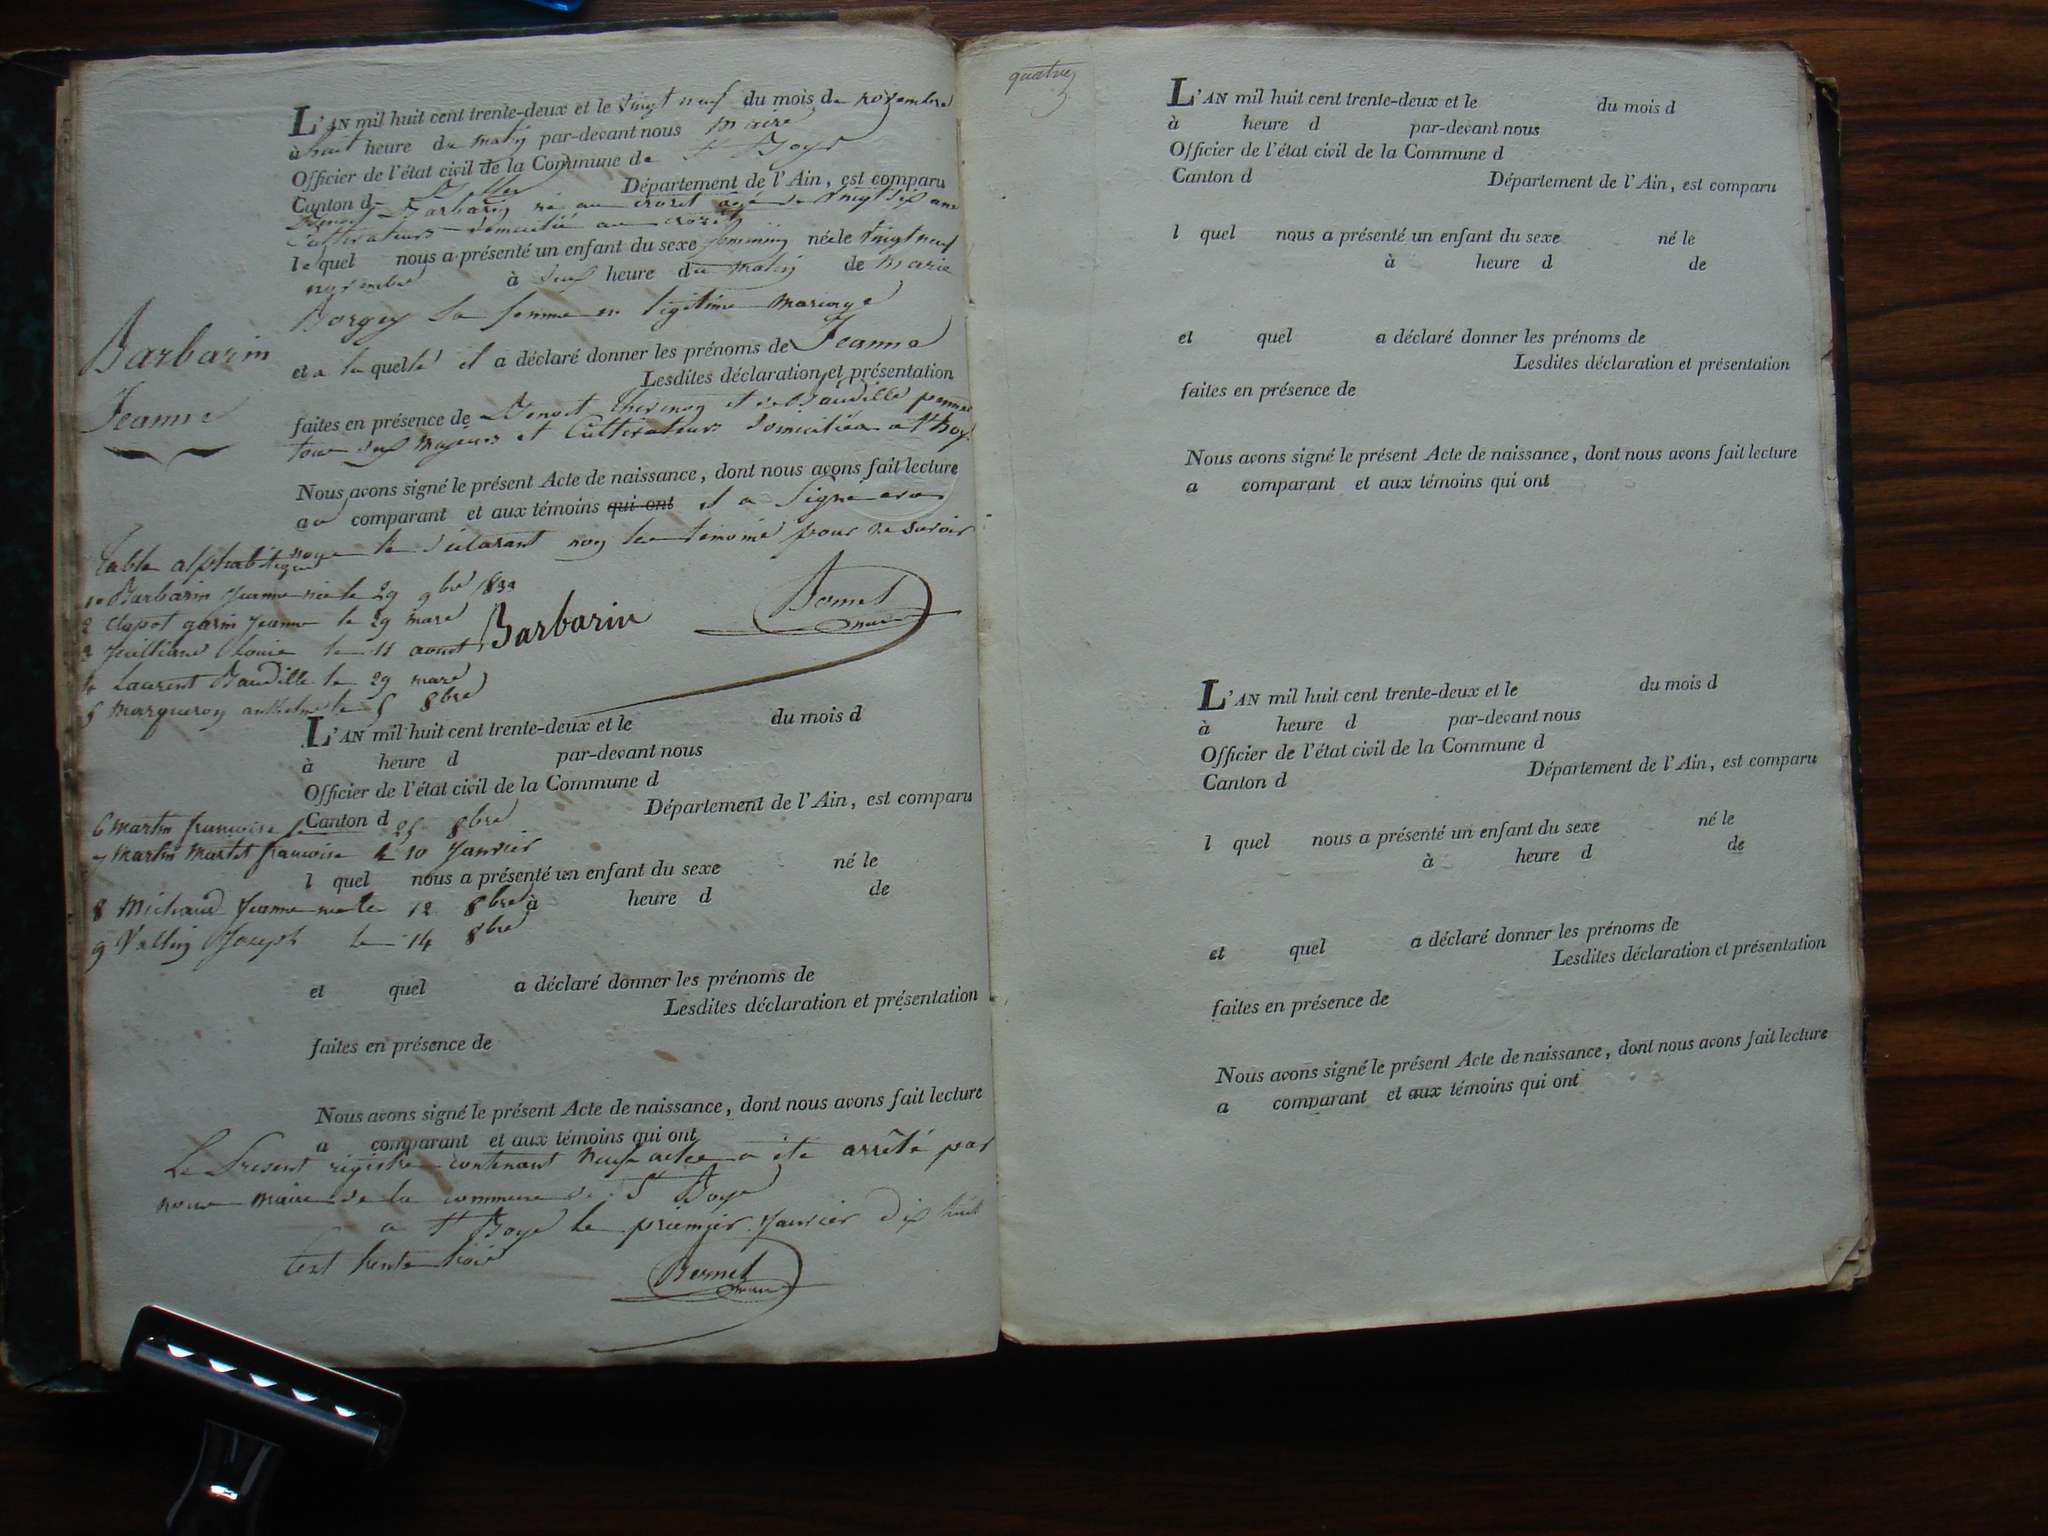 L'AN mil huit cent trente-deux et le vingt neuf du mois de novembre
à huit heure du matin par-devant nous maire
Officier de l'état civil de la Commune de St Boys
Canton de Belley Département de l'Ain, est comparu
Benoit Barbarin né au crozet agé de vingt six ans
Cultivateurs domicilié au crozet
le quel nous a présenté un enfant du sexe feminin née le vingt neuf
novembre à heure du matin de marie
la femme en légitime mariage
Barbarin
Jeanne
et a la quelle il a déclaré donner les prénoms de Jeanne
Lesdites déclaration et présentation
faites en présence de Benoit et de Baudille
tous deux majeurs et Cultivateurs domiciliés a St Boys
Nous avons signé le présent Acte de naissance, dont nous avons fait lecture
au comparant et aux témoins qui ont il a signé avec
nous le déclarant non les témoins pour ne savoir
Table alphabétique
1 Barbarin Jeanne née le 29 9bre 1832
2 Clapot garin Jeanne le 29 mars
3 Louise le 11 aoust
4 Laurent Baudille le 29 mars
5 Marqueron anthelme le 5 8bre
Barbarin
Bornet
maire
L'AN mil huit cent trente-deux et le du mois d
à heure d par-devant nous
Officier de l'état civil de la Commune d
Canton d Département de l'Ain, est comparu
6 Martin françoise le 25 8bre
7 Martin Martet françoise le 10 Janvier
l quel nous a présenté un enfant du sexe né le
à heure d de
8 Michaud Jeanne née le 12 8bre
9 Vallin Joseph le 14 8bre
et quel a déclaré donner les prénoms de
Lesdites déclaration et présentation
faites en présence de
Nous avons signé le présent Acte de naissance, dont nous avons fait lecture
a comparant et aux témoins qui ont
Le Present registre contenant neuf actes a été arrêté par
nous maire de la commune de St Boys
a St Boys le premier Janvier dix huit
cent trente trois
Bornet
maire
quatre
L'AN mil huit cent trente-deux et le du mois d
à heure d par-devant nous
Officier de l'état civil de la Commune d
Canton d Département de l'Ain, est comparu
l quel nous a présenté un enfant du sexe né le
à heure d de
et quel a déclaré donner les prénoms de
Lesdites déclaration et présentation
faites en présence de
Nous avons signé le présent Acte de naissance, dont nous avons fait lecture
a comparant et aux témoins qui ont
L'AN mil huit cent trente-deux et le du mois d
à heure d par-devant nous
Officier de l'état civil de la Commune d
Canton d Département de l'Ain, est comparu
l quel nous a présenté un enfant du sexe né le
à heure d de
et quel a déclaré donner les prénoms de
Lesdites déclaration et présentation
faites en présence de
Nous avons signé le présent Acte de naissance, dont nous avons fait lecture
a comparant et aux témoins qui ont